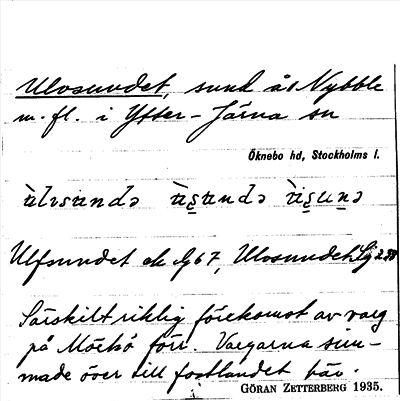 Ulvsundet, sund å1 Nybble
m. fl. i Ytter-Järna sn
Öknebo hd, Stockholms l.
Ulfsundet ek 67, Ulvsundet
Särskilt riklig förekomst av varg
på Mörkö förr. Vargarna sim-
made över till fastlandet här.
GÖRAN ZETTERBERG 1935.